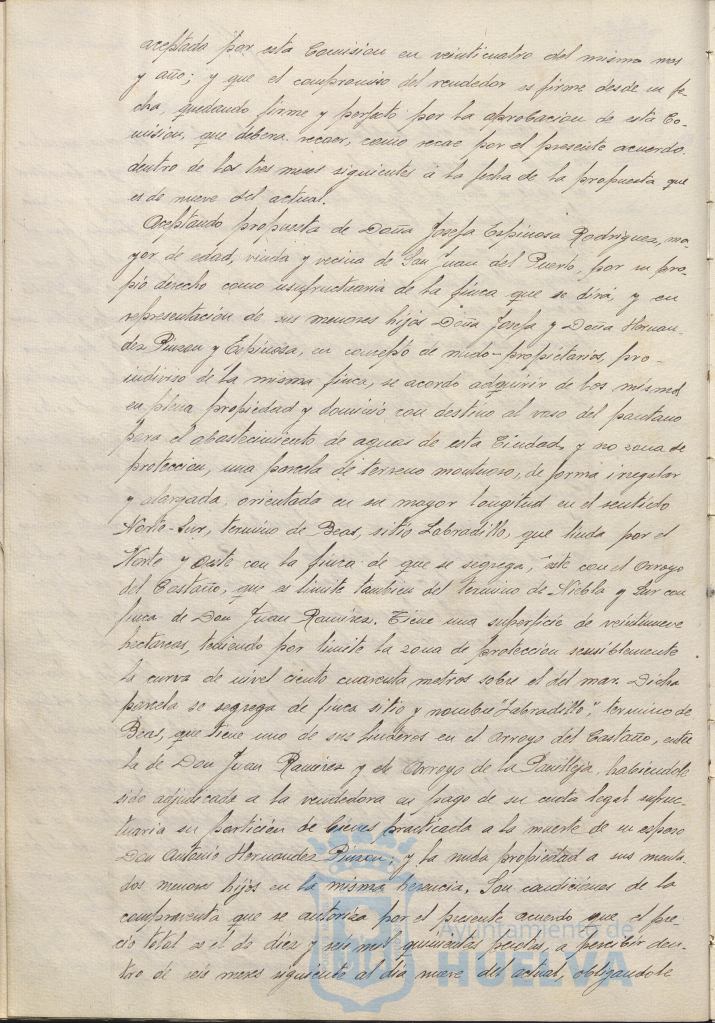 aceptada por esta Comision en veinticuatro del mismo mes
y año; y que el compromiso del vendedor es firme desde su fe-
cha, quedando firme y perfecto por la aprobacion de esta Co-
mision, que debera recaer, como recae por el presente acuerdo,
dentro de los tres meses siguientes á la fecha de la propuesta que
es de nueve del actual.
Aceptando propuesta de Doña Josefa Espinosa Rodriguez, ma-
yor de edad, viuda y vecina de San Juan del Puerto, por su pro-
pio derecho como usufructuaria de la finca que se dirá, y en
representación de sus menores hijos Doña Josefa y Doña Hernan-
dez Pinzon y Espinosa, en concepto de nudo-propietarios, pro-
indiviso de la misma finca, se acordo adquirir de los mismos
en plena propiedad y dominio con destino al vaso del pantano
para el abastecimiento de aguas de esta Ciudad, y no zona de
proteccion, una parcela de terreno montuoso, de forma irregular
y alargada, orientada en su mayor longitud en el sentido
Norte-Sur, termino de Beas, sitio Labradillo, que linda por el
Norte y Oeste con la finca de que se segrega, este con el Arroyo
del Castaño, que es limite tambien del termino de Niebla y Sur con
finca de Don Juan Ramirez. Tiene una superficie de veintinueve
hectareas, teniendo por limite la zona de proteccion sensiblemente
la curva de nivel ciento cuarenta metros sobre el del mar. Dicha
parcela se segrega de finca sitio y nombre "Labradillo", termino de
Beas, que tiene uno de sus linderos en el Arroyo del Castaño, entre
la de Don Juan Ramirez y el Arroyo de la habiendole
sido adjudicada a la vendedora en pago de su cuota legal usufruc-
tuaria en particion de bienes practicada a la muerte de su esposo
Don Antonio Hernandez Pinzon; y la nuda propiedad a sus menta
dos menores hijos en la misma herencia. Son condiciones de la
compraventa que se autoriza por el presente acuerdo que el pre-
cio total es el de diez y seis mil quinientas pesetas, a percibir den-
tro de seis meses siguiente al dia nueve del actual, obligandole
Ayuntamiento de
HUELVA